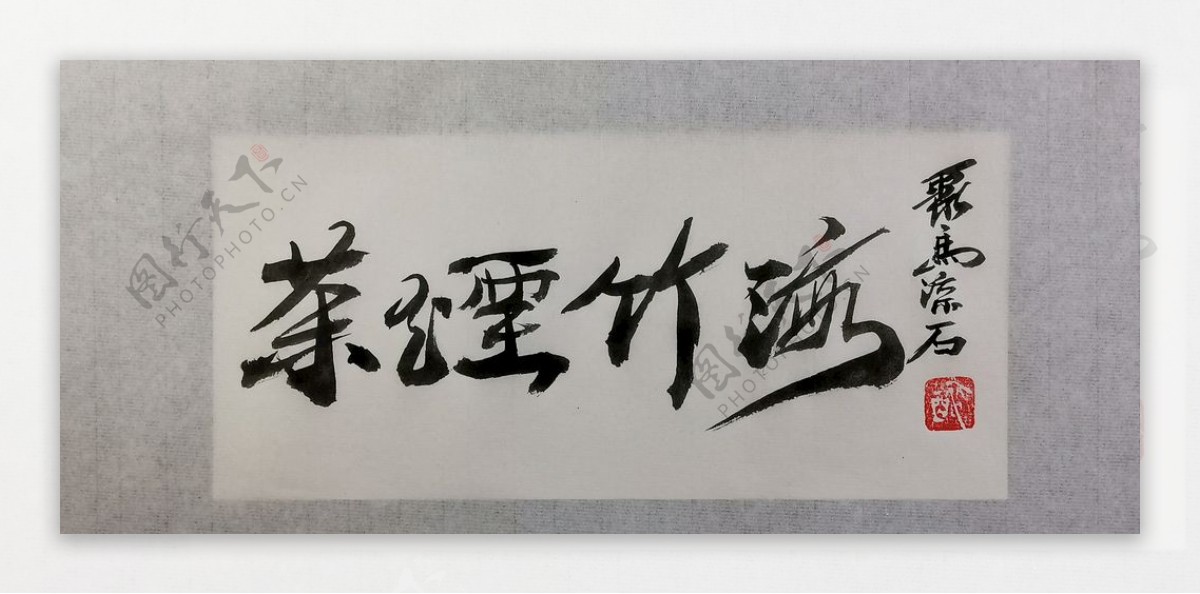 茶煙竹海
聚馬凉石
图行天下
PHOTO.CN
图行天下
PHOTO.CN